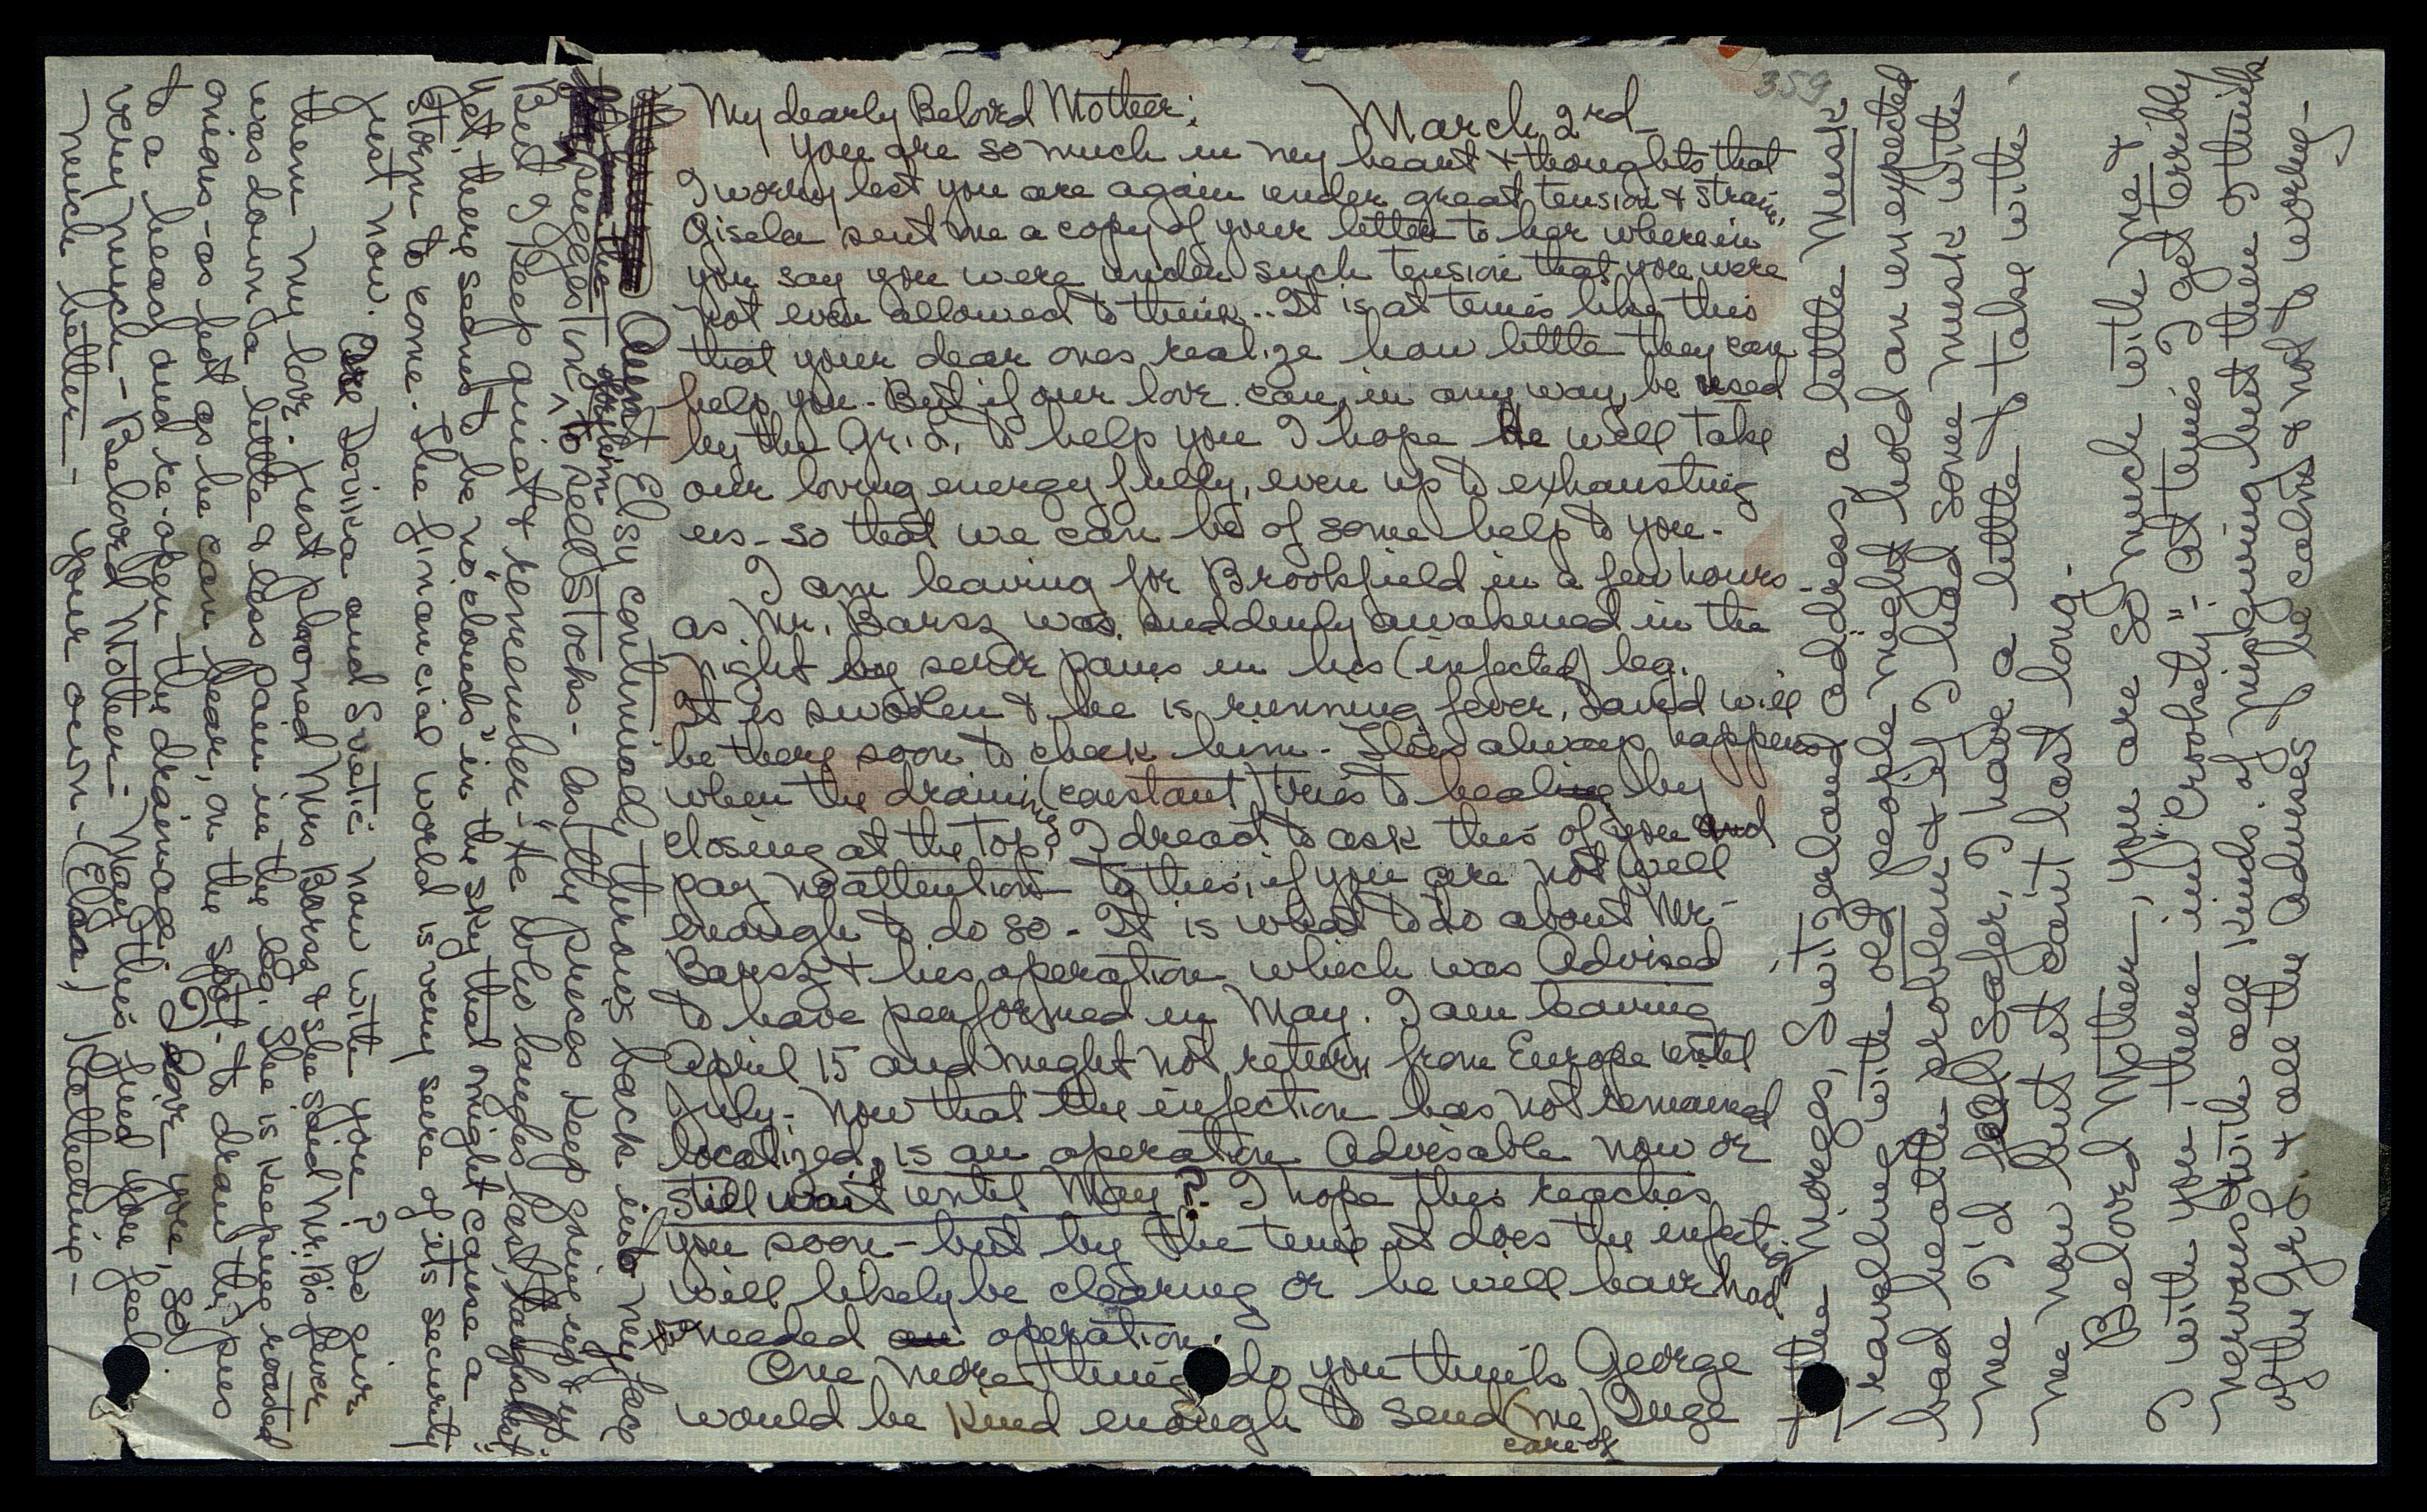 359
My dearly Beloved Mother; March 2nd
You are so much in my heart & thoughts that
I worry lest you are again under great tension & strain.
Gisela sent me a copy of your letter to her wherein
you say you were under such tension that you were
not even allowed to think.. It is at times like this
that your dear ones realize how little they can
help you - But if our love can, in any way, be used
by the Grd, to help you I hope He will take
our loving energy fully, even up to exhausting
us - so that we can be of some help to you -
I am leaving for Brookfield in a few hours -
as Mr. Barsz was suddenly awakened in the
night by severe pains in his (infected) leg.
It is swollen & he is running fever, David will
be there soon to check him - This always happens
when the draining (constant) tries to heal by
closing at the top. I dread to ask this of you and
pay no attention to this, if you are not well
enough to do so - It is what to do about Mr.
Barsz & his operation which was advised
to have performed in May. I am leaving
April 15 and might not return from Europe until
July - Now that the infection has not remained
localized, is an operation advisable now or
still wait until May? I hope this reaches
you soon - but by the time it does the infection
will likely be clearing or he will have had
needed operation.
One more thing do you think George
would be kind enough to send (me) Inge
care of
ther Morges, Switzerland address, a little musk
Travelling with old people might hold an unexpected
bad health problem & if I had some musk with
me I'd feel safer, I have a little to take with
me now but it can't last long -
Beloved Mother -, you are so much with me &
I with you - there in "Crookety" - at times I get terribly
nervous with all kinds of misgiving but then I think
of the Grd. & all the advises to be calm & not to worry -
Aunt Elsy continually throws back into my face
the suggestion of for him to sell stocks - as the prices keep going up & up.
But I keep quiet & remember - "He who laughs last, laughs best."
Yet, there seems to be no "clouds" in the sky that might cause a
storm to come. The financial world is very sure of its security
just now. Are Devika and Svetic now with you? Do give
them my love. Just phoned Mrs Barsz & she said Mr. B's fever
was down a little & less pain in the leg. She is keeping roasted
onions - as hot as he can bear, on the spot - to draw the pus
to a head and re-open the drainage. I love you, so
very much - Beloved Mother - May this find you feel
much better - Your own - (Elsa,) Katherine -